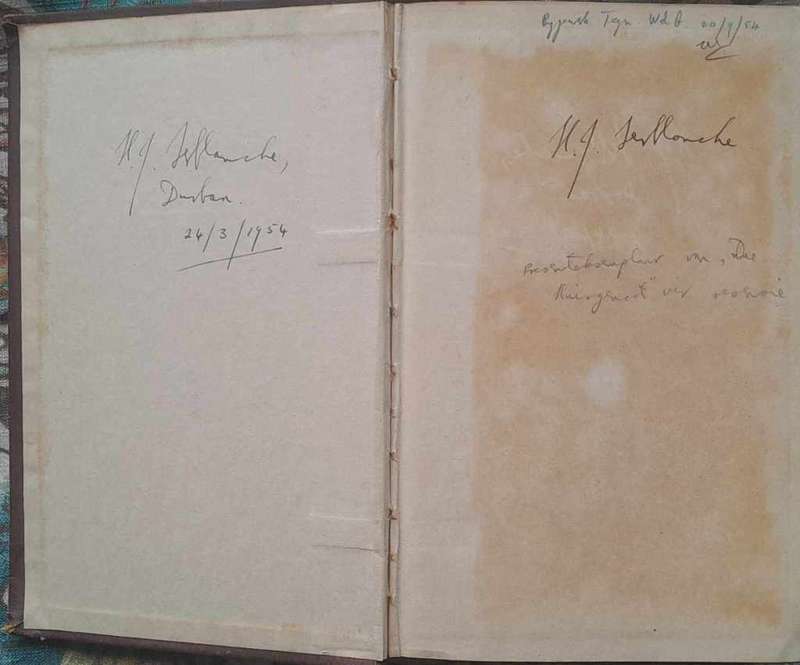 H.J. Terblanche,
Durban.
24/3/1954
Tgn. W.d.B. 20/9/54
H.J. Terblanche
Presenteksemplaar van „Die
Huisgenoot" vir resensie